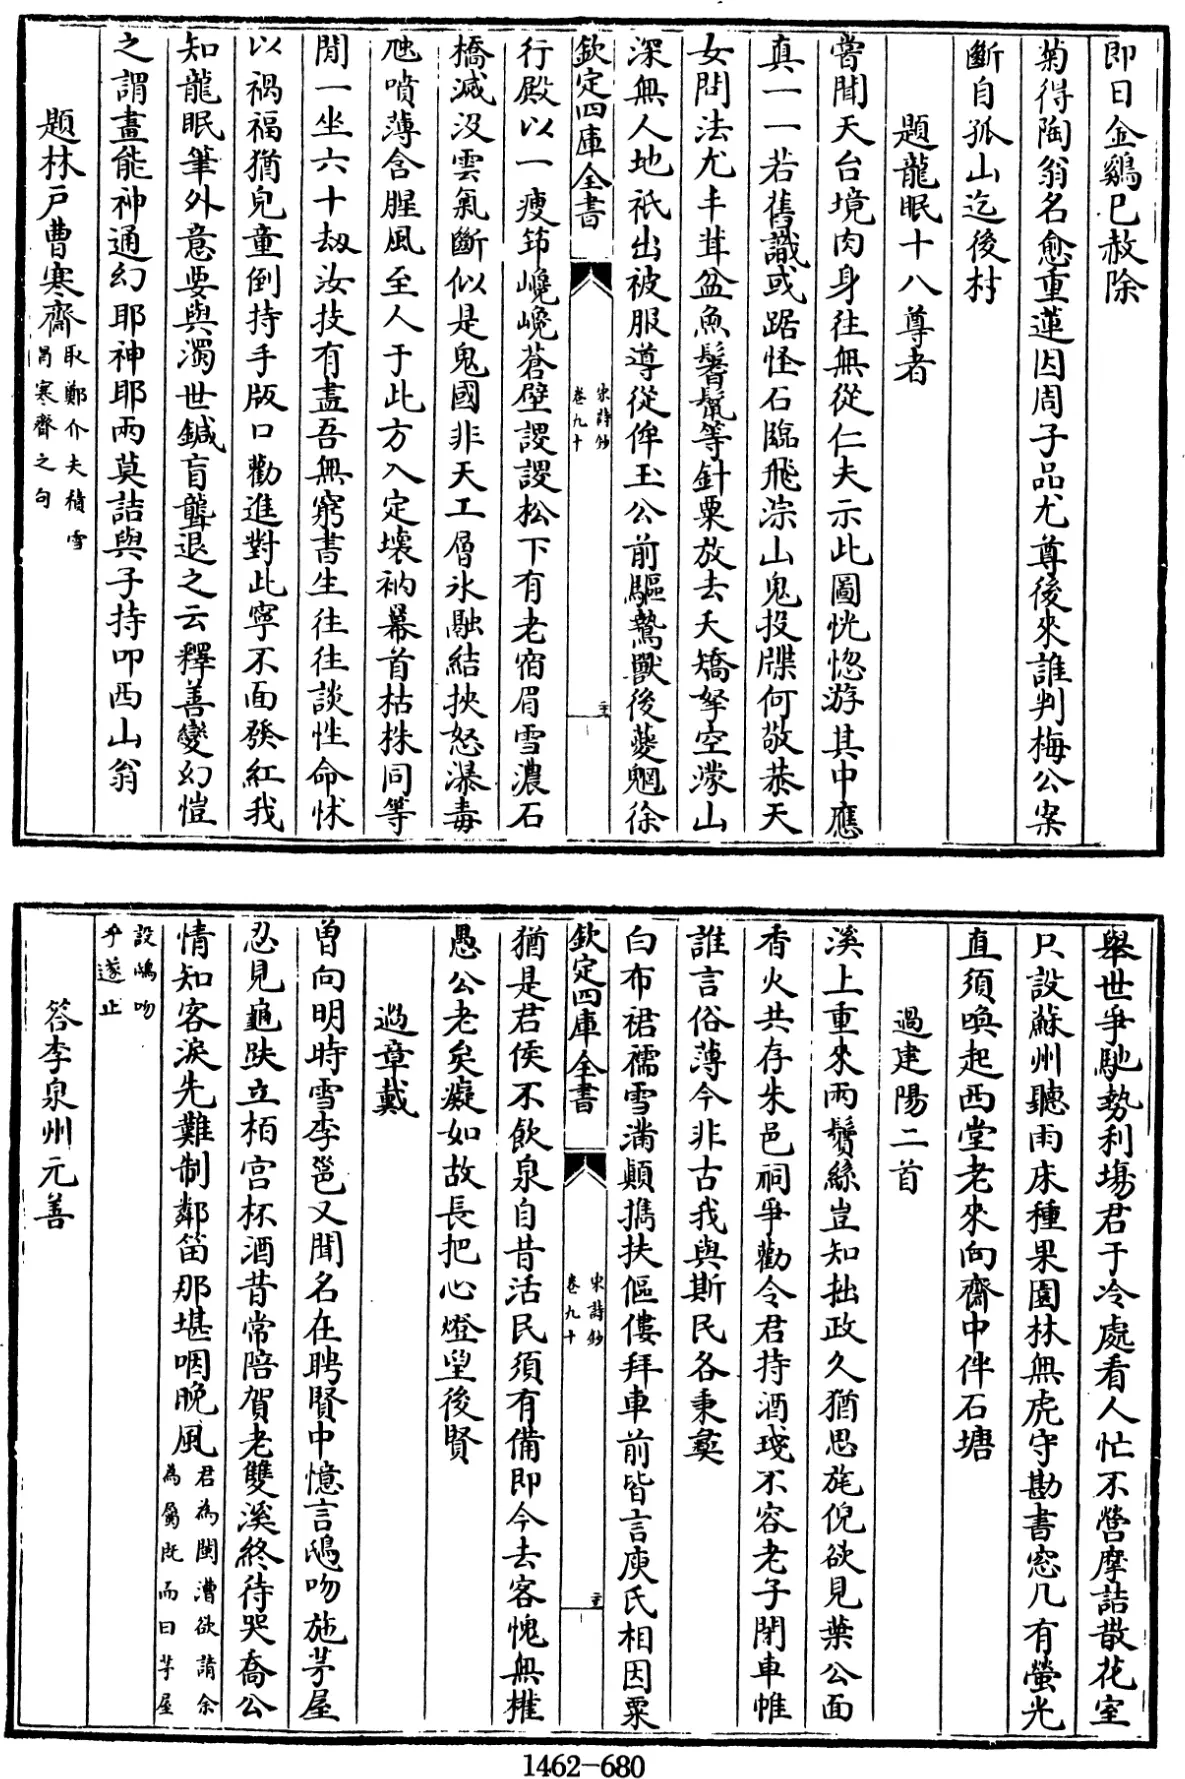 即日金鷄已赦除
菊得陶翁名愈重蓮因周子品尤尊後來誰判梅公案
斷自孤山迄後村
題龍眠十八尊者
嘗聞天台境肉身往無從仁夫示此圖恍惚游其中應
真一一若舊識或踞怪石臨飛淙山鬼投牒何敬恭天
女問法尤丰茸盆魚鬐鬣等針粟放去夭矯拏空濛山
深無人地祇出被服導從侔王公前驅鷙獸後夔魍徐
欽定四庫全書
宋詩鈔
卷九十
行殿以一瘦筇巉巉蒼壁謖謖松下有老宿眉雪濃石
橋滅沒雲氣斷似是鬼國非天工層氷融結挾怒瀑毒
虺噴薄含腥風至人于此方入定壞衲羃首枯株同等
閒一坐六十刼汝技有盡吾無窮書生往往談性命怵
以禍福猶兒童倒持手版口勸進對此寧不面發紅我
知龍眠筆外意要與濁世鍼盲聾退之云釋善變幻愷
之謂畫能神通幻耶神耶兩莫詰與子持叩西山翁
題林戶曹寒齋取鄭介夫積雪
冐寒齋之句
舉世爭馳勢利場君于冷處看人忙不營摩詰散花室
只設蘇州聽雨床種果園林無虎守勘書窓几有螢光
直須喚起西堂老來向齋中伴石塘
過建陽二首
溪上重來兩鬢絲豈知拙政久猶思旄倪欲見葉公面
香火共存朱邑祠爭勸令君持酒琖不容老子閉車帷
誰言俗薄今非古我與斯民各秉彝
白布裙襦雪滿顛擕扶傴僂拜車前皆言庾氏相因粟
欽定四庫全書
宋詩鈔
卷九十
猶是君侯不飲泉自昔活民須有備即今去客愧無權
愚公老矣癡如故長把心燈望後賢
過章戴
曽向明時雪李邕又聞名在聘賢中憶言鴟吻施茅屋
忍見龜趺立栢宫杯酒昔常陪賀老雙溪終待哭喬公
情知客淚先難制鄰笛那堪咽晚風君為閩漕欲請余
為屬既而曰茅屋
設鴟吻
乎遂止
答李泉州元善
1462-680